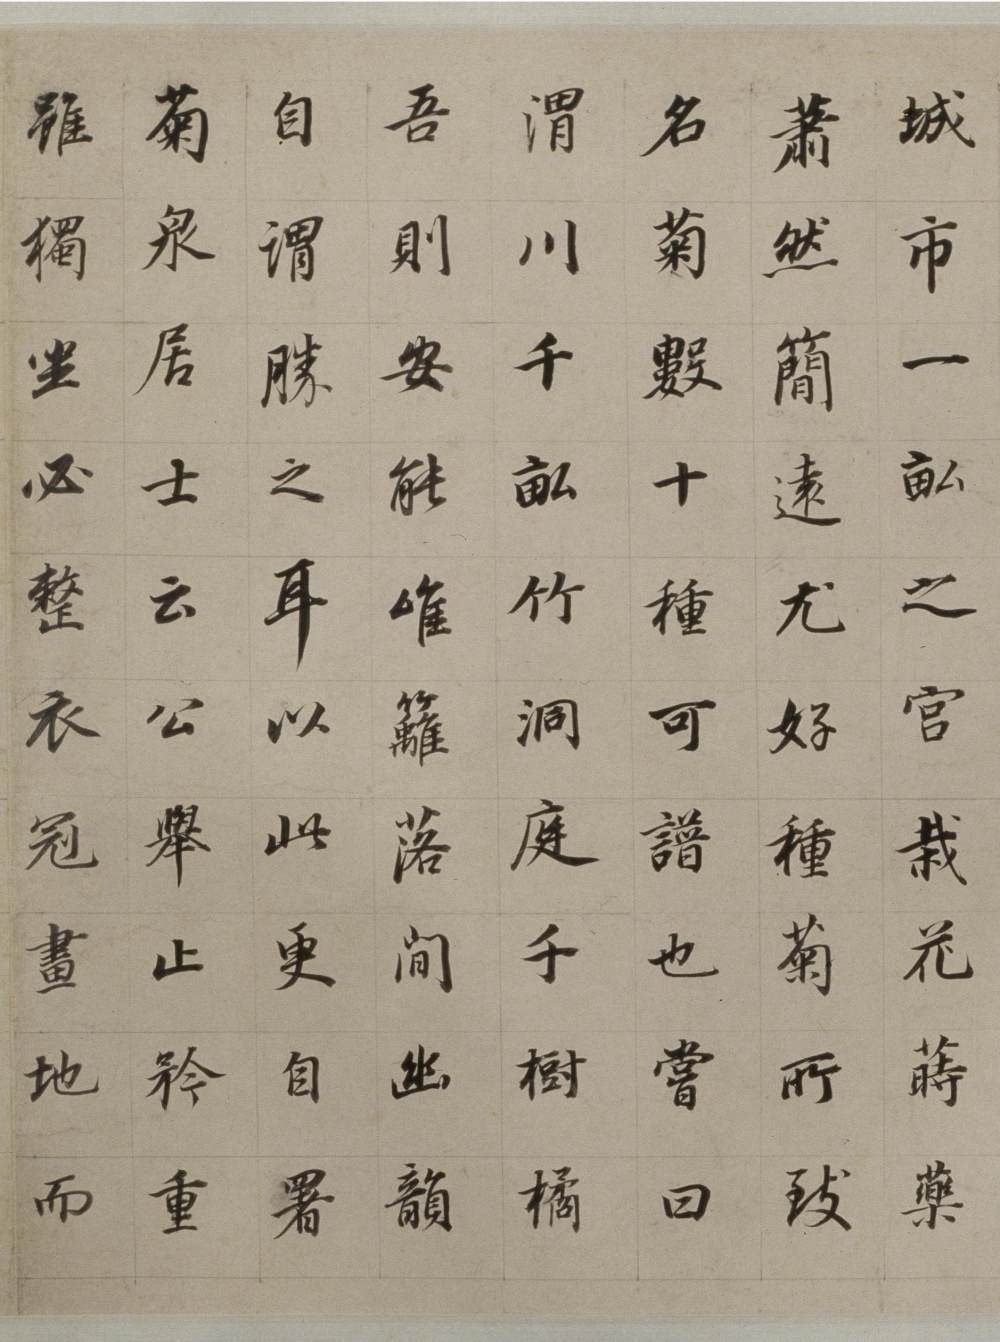 城市一畝之宮栽花蒔藥
蕭然簡遠尤好種菊所致
名菊數十種可譜也嘗曰
渭川千畝竹洞庭千樹橘
吾則安能唯籬落間幽韻
自謂勝之耳以此更自署
菊泉居士云公舉止矜重
雖獨坐必整衣冠畫地而